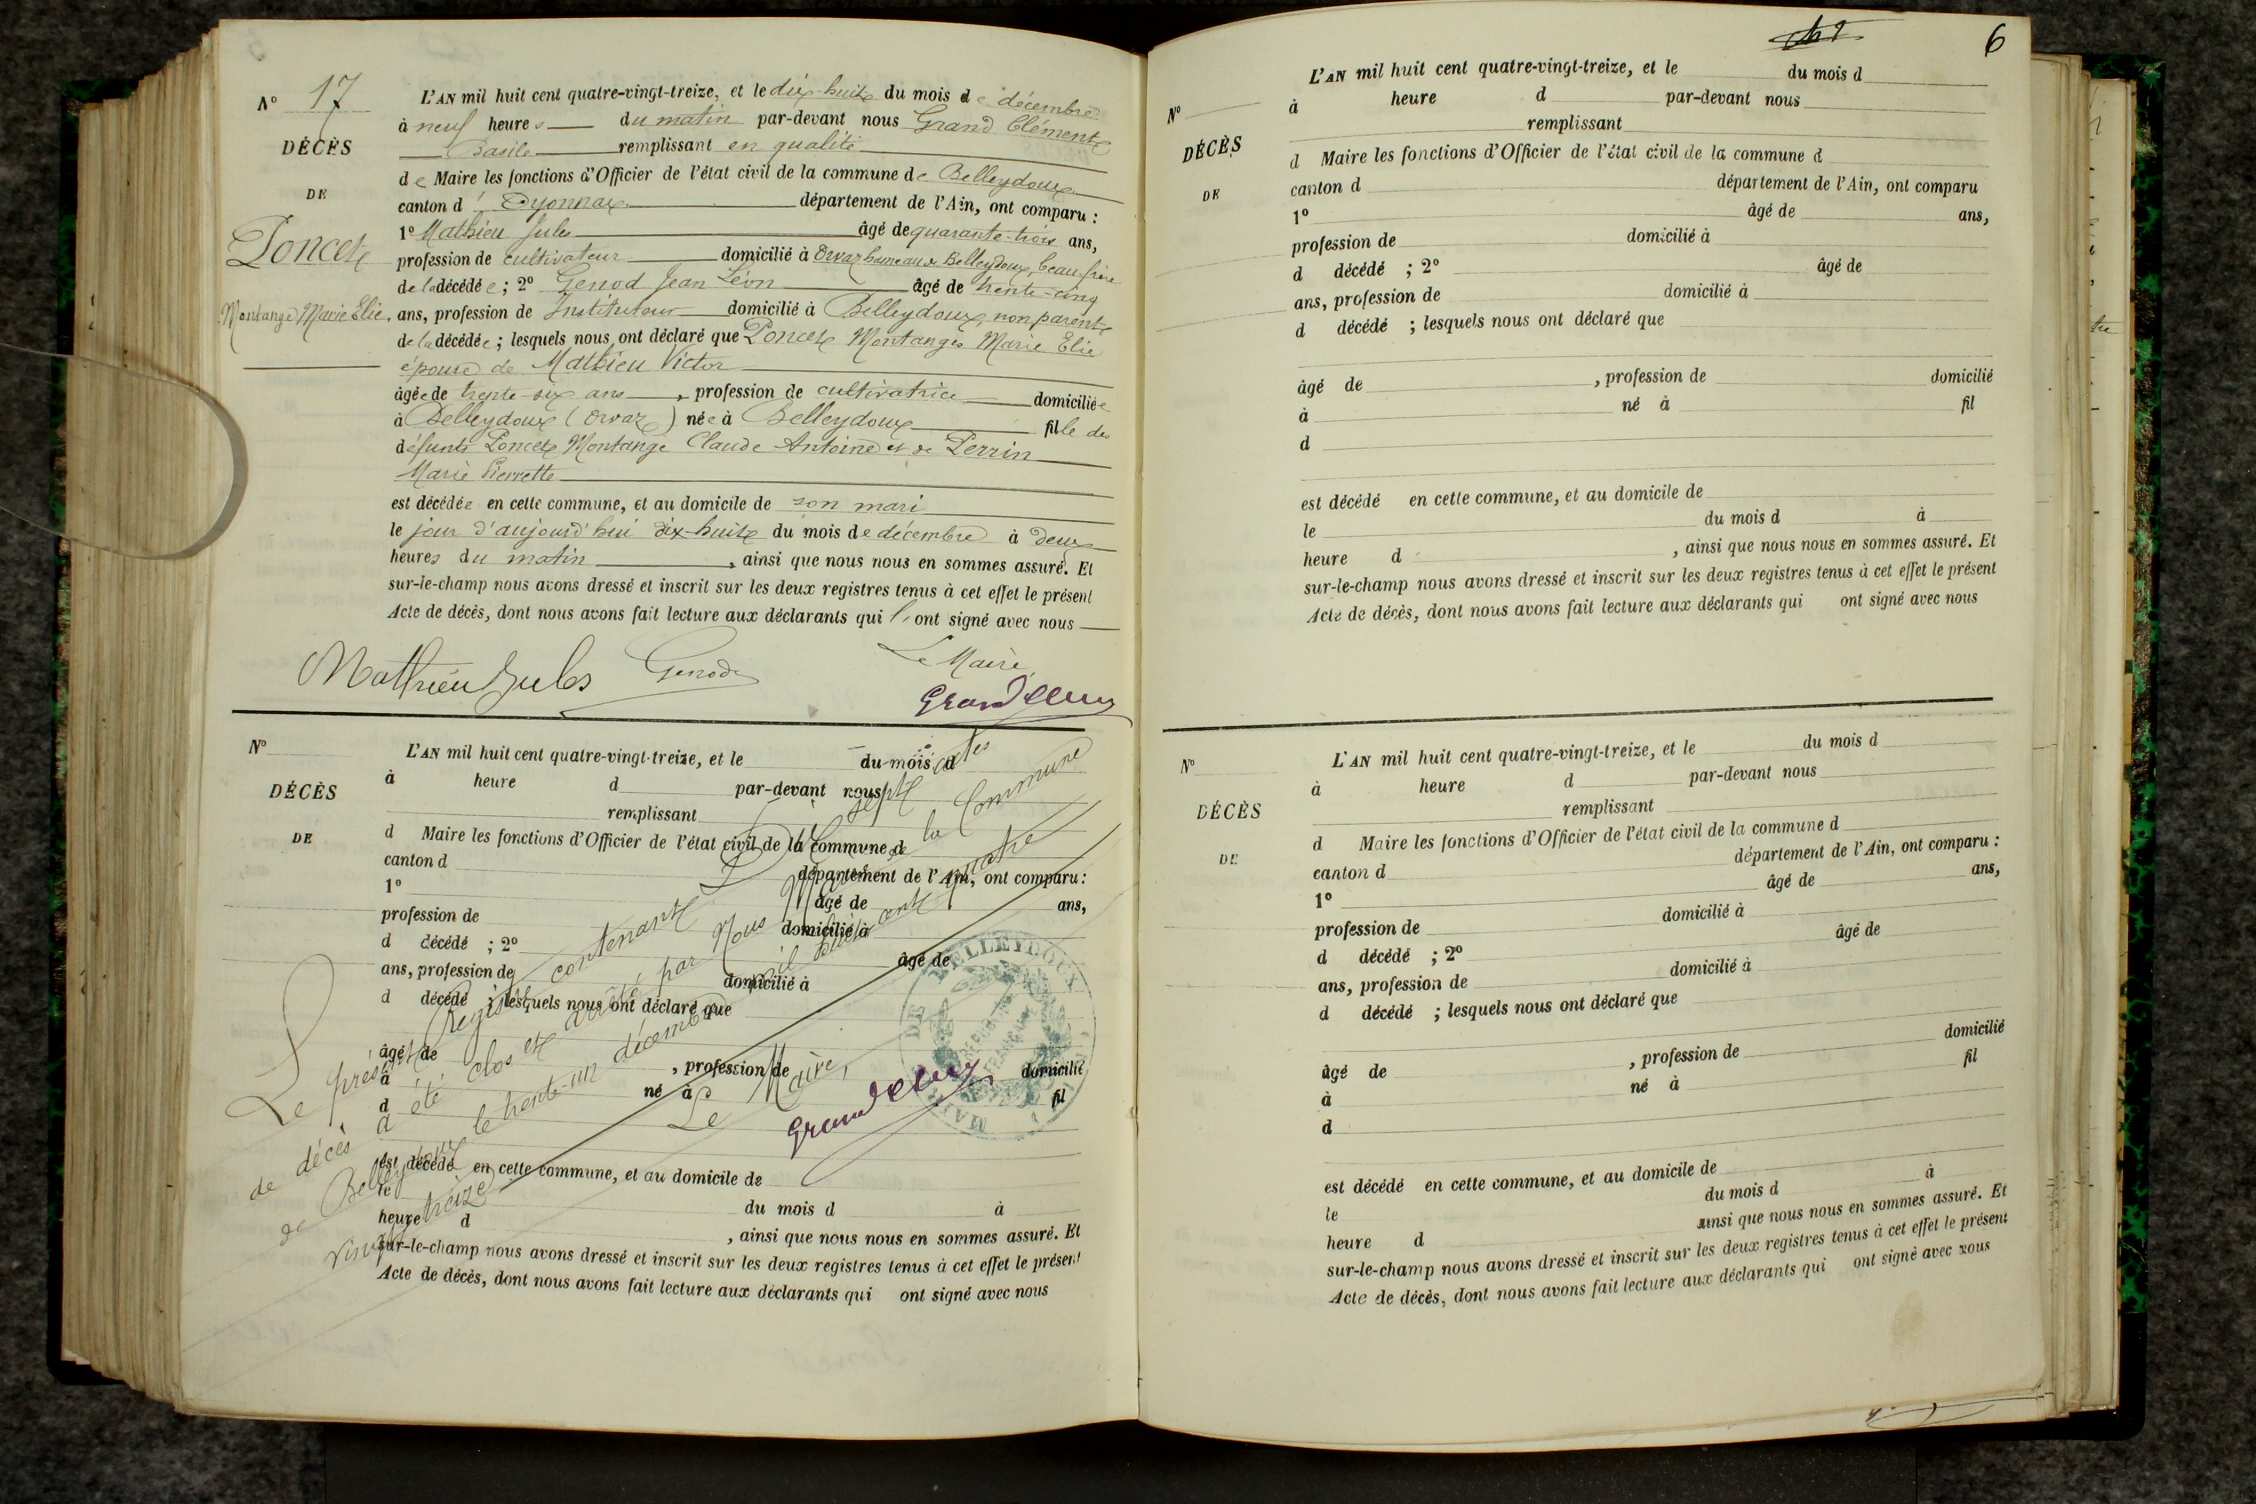 N° 17
DÉCÈS
DE
Poncet
Montange Marie Elie.
L'AN mil huit cent quatre-vingt-treize, et le dix-huit du mois de décembre
à neuf heures du matin par-devant nous Grand Clément
Basile remplissant en qualité
de Maire les fonctions d'Officier de l'état civil de la commune de Belleydoux
canton d'Oyonnax département de l'Ain, ont comparu :
1° Mathieu Jules âgé de quarante-trois ans,
profession de cultivateur domicilié à Orvaz hameau de Belleydoux, beau frère
de la décédée ; 2° Genod Jean Léon âgé de trente-cinq
ans, profession de Instituteur domicilié à Belleydoux, non parent
de la décédée ; lesquels nous ont déclaré que Poncet Montange Marie Elie
épouse de Mathieu Victor
âgée de trente-six ans, profession de cultivatrice domiciliée
à Belleydoux (Orvaz) née à Belleydoux fille des
défunts Poncet Montange Claude Antoine et de Perrin
Marie Pierrette
est décédée en cette commune, et au domicile de son mari
le jour d'aujourd'hui dix-huit du mois de décembre à deux
heures du matin, ainsi que nous nous en sommes assuré. Et
sur-le-champ nous avons dressé et inscrit sur les deux registres tenus à cet effet le présent
Acte de décès, dont nous avons fait lecture aux déclarants qui l'ont signé avec nous
Mathieu Jules Genod Le Maire
Grandclem
N°
DÉCÈS
DE
L'AN mil huit cent quatre-vingt-treize, et le du mois d
à heure d par-devant nous
remplissant
d Maire les fonctions d'Officier de l'état civil de la commune d
canton d département de l'Ain, ont comparu :
1° âgé de ans,
profession de domicilié à
d décédé ; 2° âgé de
ans, profession de domicilié à
d décédé ; lesquels nous ont déclaré que
âgé de , profession de domicilié
à né à fil
d
est décédé en cette commune, et au domicile de
le du mois d à
heure d , ainsi que nous nous en sommes assuré. Et
sur-le-champ nous avons dressé et inscrit sur les deux registres tenus à cet effet le présent
Acte de décès, dont nous avons fait lecture aux déclarants qui ont signé avec nous
Le présent Registre contenant Dix sept actes
de décès a été clos et arrêté par Nous Maire de la Commune
de Belleydoux le trente-un décembre mil huit cent quatre
vingt treize
Le Maire,
Grandclem
MAIRIE DE BELLEYDOUX
6
N°
DÉCÈS
DE
L'AN mil huit cent quatre-vingt-treize, et le du mois d
à heure d par-devant nous
remplissant
d Maire les fonctions d'Officier de l'état civil de la commune d
canton d département de l'Ain, ont comparu
1° âgé de ans,
profession de domicilié à
d décédé ; 2° âgé de
ans, profession de domicilié à
d décédé ; lesquels nous ont déclaré que
âgé de , profession de domicilié
à né à fil
d
est décédé en cette commune, et au domicile de
le du mois d à
heure d , ainsi que nous nous en sommes assuré. Et
sur-le-champ nous avons dressé et inscrit sur les deux registres tenus à cet effet le présent
Acte de décès, dont nous avons fait lecture aux déclarants qui ont signé avec nous
N°
DÉCÈS
DE
L'AN mil huit cent quatre-vingt-treize, et le du mois d
à heure d par-devant nous
remplissant
d Maire les fonctions d'Officier de l'état civil de la commune d
canton d département de l'Ain, ont comparu :
1° âgé de ans,
profession de domicilié à
d décédé ; 2° âgé de
ans, profession de domicilié à
d décédé ; lesquels nous ont déclaré que
âgé de , profession de domicilié
à né à fil
d
est décédé en cette commune, et au domicile de
le du mois d à
heure d ainsi que nous nous en sommes assuré. Et
sur-le-champ nous avons dressé et inscrit sur les deux registres tenus à cet effet le présent
Acte de décès, dont nous avons fait lecture aux déclarants qui ont signé avec nous